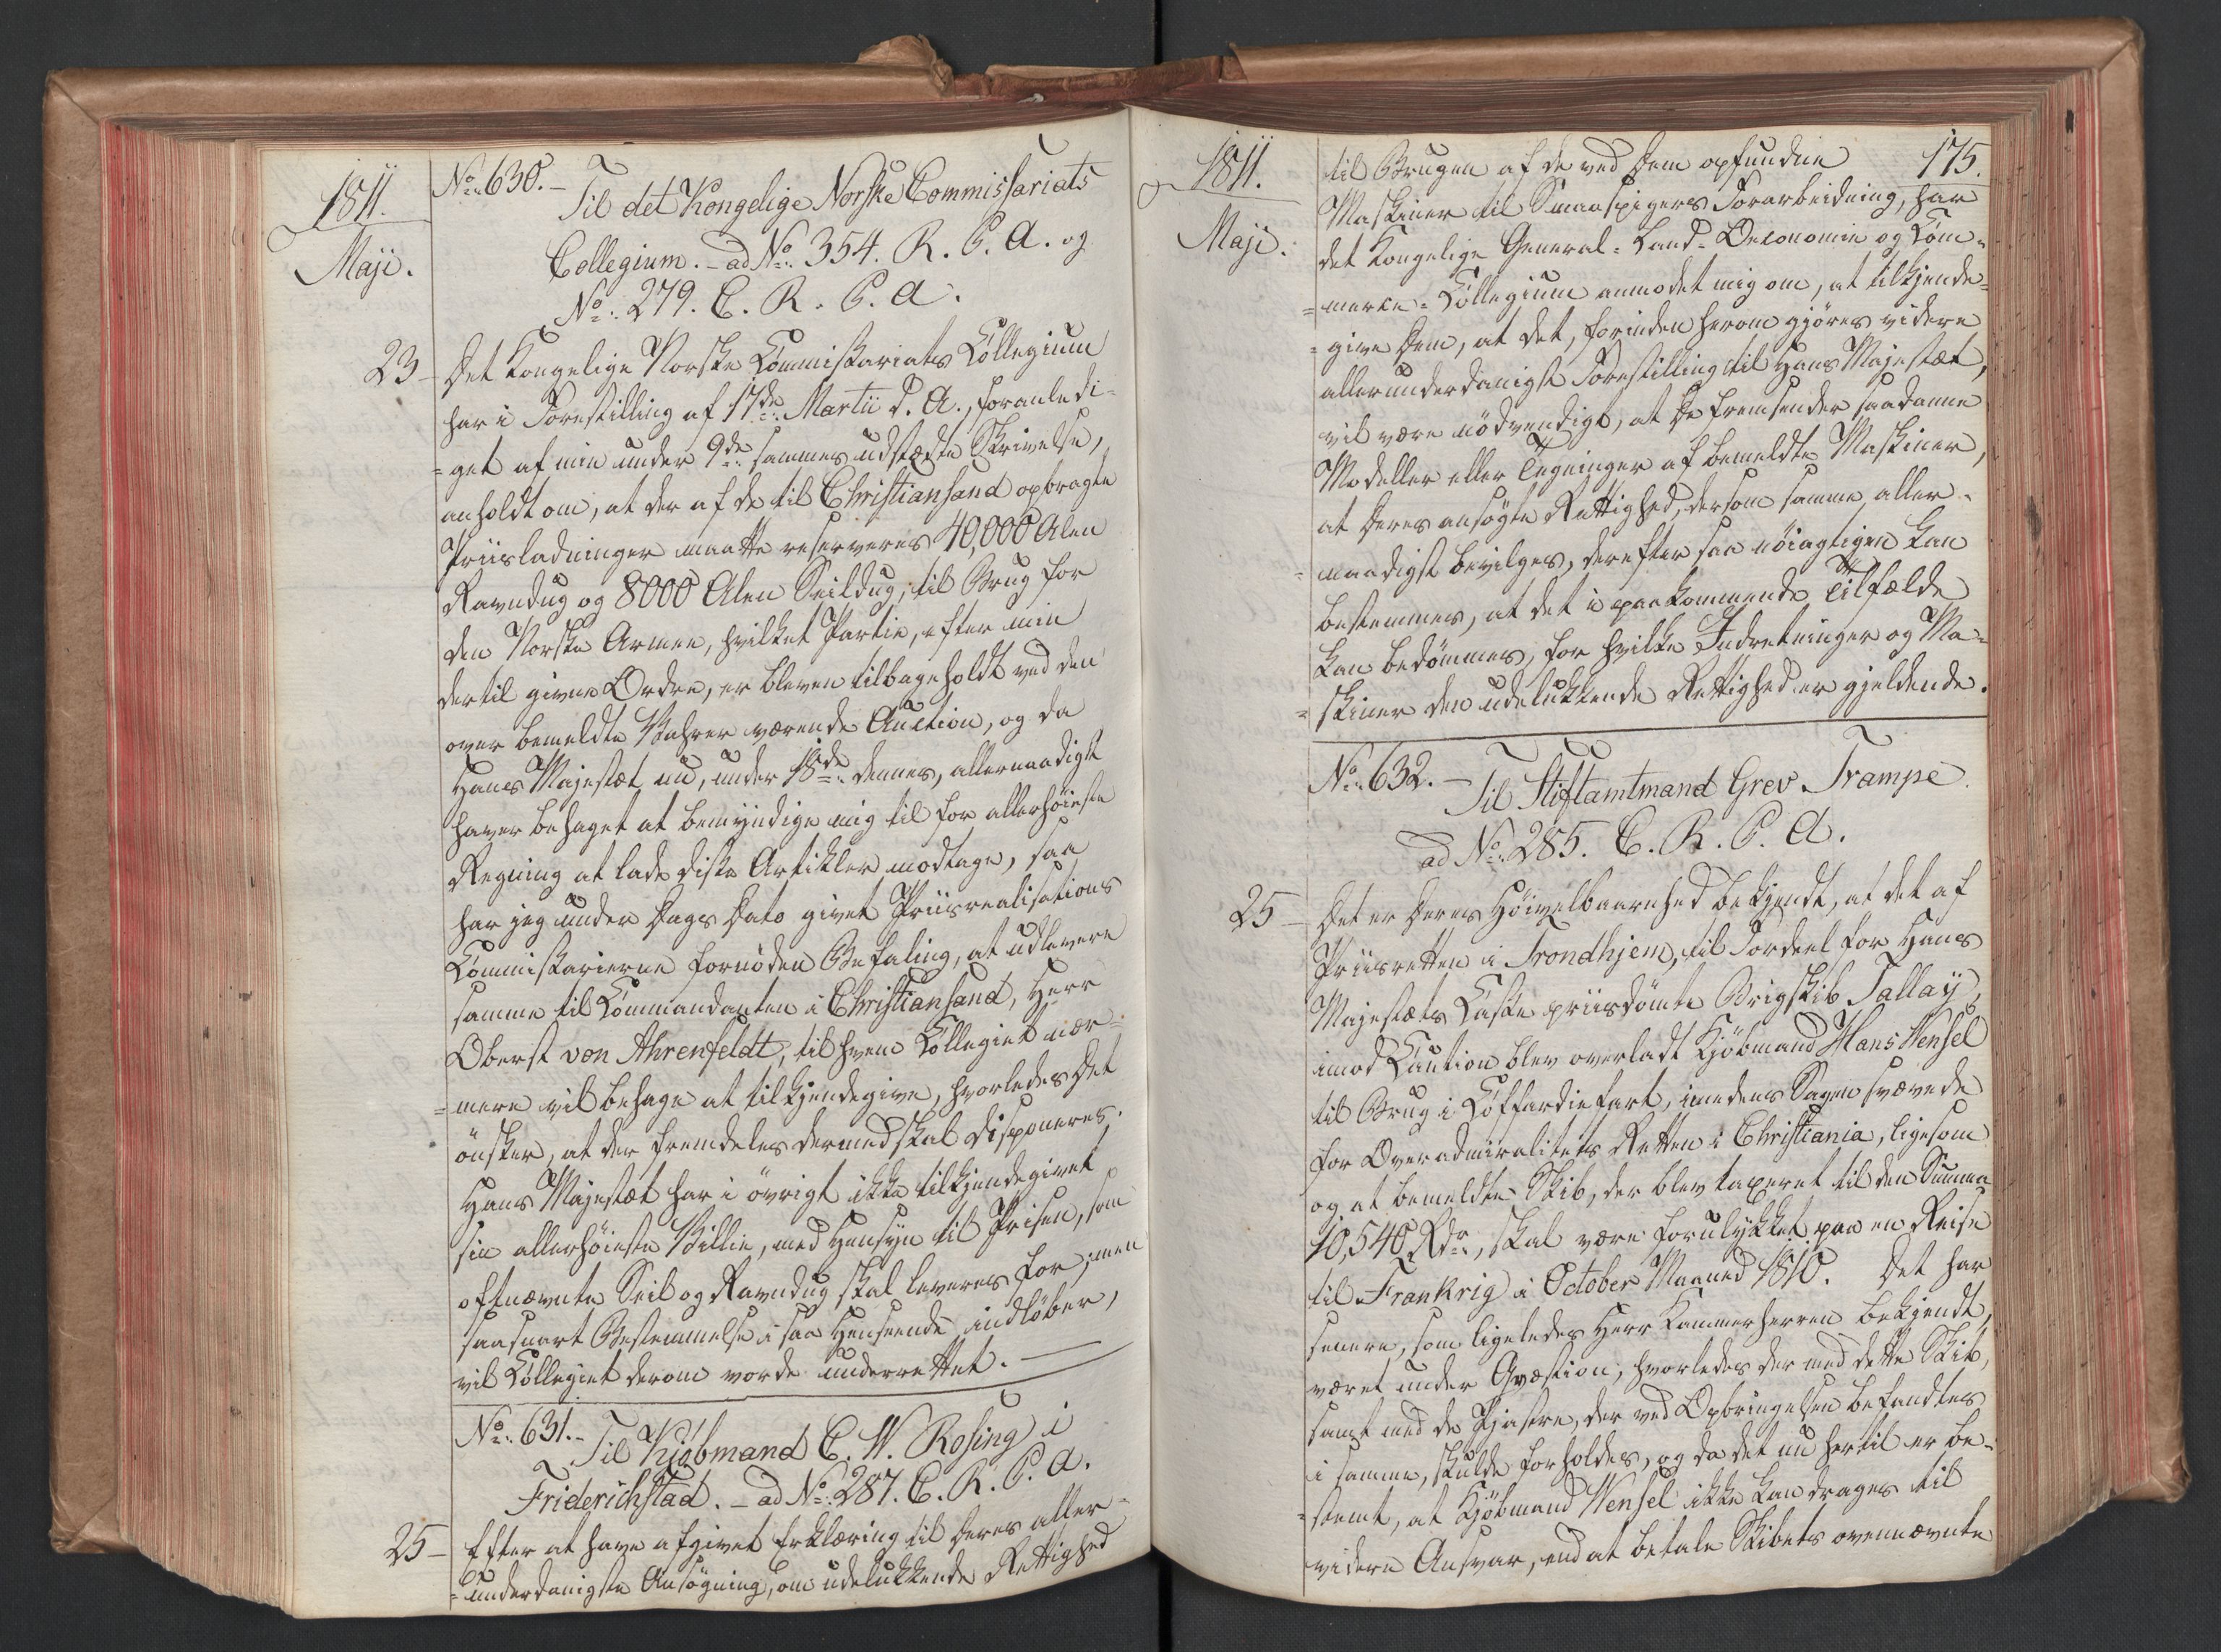 1811.
Maji.
No. 630. –
Til det Kongelige Norske Commissariats
Collegium. – ad No. 354. R. P. A. og
No. 279. C. R. P. A.
23 –
Det Kongelige Norske Commissariats Collegium
har i Forestilling af 17de Martii d. A., foranledi-
=get af min under 9de sammes udstædte Skrivelse,
anholdt om, at der af de til Christiansand opbragte
Priisladninger maatte reserveres 40,000 Alen
Ravndug og 8000 Alen Seildug, til Brug for
den Norske Armee, hvilket Partie, efter min
dertil givne Ordre, er bleven tilbageholdt ved den
over bemeldte Vahrer værende Auction, og da
Hans Majestæt nu, under 18de dennes, allernaadigst
haver behaget at bemyndige mig til for allerhöieste
Regning at lade diske Artikler modtage, saa
har jeg under Dags Dato givet Priisrealisations
Commissarierne fornöden Befaling, at udlevere
samme til Commandanten i Christiansand, Herr
Oberst von Ahrenfeldt, til hvem Collegiet nær-
=mere vil behage at tilkjendegive, hvorledes Det
önsker, at der fremdeles dermed skal disponeres.
Hans Majestæt har i övrigt ikke tilkjendegivet
sin allerhöieste Villie, med Hensyn til Prisen, som
oftnævnte Seil og Ravndug skal leveres for; men
saasnart Bestemmelse i saa Henseende indlöber,
vil Collegiet derom vorde underrettet. –
No. 631. –
Til Kjöbmand C. W. Rosing i
Friderichstad. – ad No. 287. C. R. P. A.
25 –
Efter at have afgivet Erklæring til Deres aller-
=underdanigste Ansögning, om udelukkende Rettighed
1811.
Maji.
175.
til Brugen af de ved Dem opfundne
Maskiner til Smaaspigers Forarbeidning, har
det Kongelige General-Land-Oeconomie og Com-
=merce-Collegium anmodet mig om, at tilkjende-
=give Dem, at det, forinden herom gjöres videre
allerunderdanigst Forestilling til Hans Majestæt,
vil være nödvendigt, at De fremsender saadanne
Modeller eller Tegninger af bemeldte Maskiner,
at Deres ansögte Rettighed, dersom samme aller-
=naadigst bevilges, derefter saa nöiagtigen kan
bestemmes, at det i paakommende Tilfælde
kan bedömmes, for hvilke Indretninger og Ma-
=skiner den udelukkende Rettighed er gjeldende.
No. 632. –
Til Stiftamtmand Grev Trampe
ad No. 285. C. R. P. A.
25 –
Det er Deres Höivelbaarnhed bekjendt, at det af
Priisretten i Trondhjem, til Fordeel for Hans
Majestæts Casse priisdömte Brigskib Tallay,
imod Caution blev overladt Kjöbmand Hans Wensel
til Brug i Coffardiefart, imedens Sagen svævede
for Overadmiralitets Retten i Christiania, ligesom
og at bemeldte Skib, der blev taxeret til den Summa
10,540 Rdr., skal være forulykket paa en Reise
til Frankrig i October Maaned 1810. Det har
senere, som ligeledes Herr Kammerherren bekjendt,
været under Qvæstion, hvorledes der med dette Skib,
samt med de Pjastre, der ved Opbringelsen befandtes
i samme, skulde forholdes, og da det nu hertil er be-
=stemt, at Kjöbmand Wensel ikke kan drages til
videre Ansvar, end at betale Skibets ovennævnte